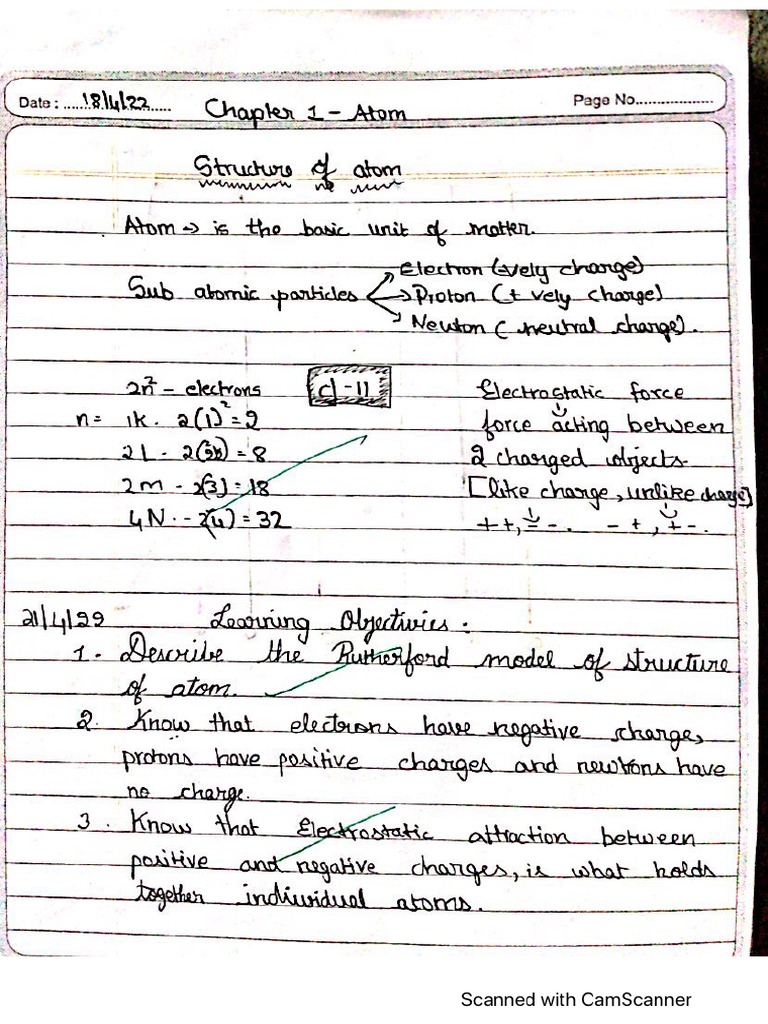 Date : ......18/4/22..... Chapter 1 - Atom Page No..................
Structure of atom
Atom → is the basic unit of matter.
Sub atomic particles
Electron (-vely charge)
Proton (+ vely charge)
Newton ( neutral charge).
2n² - electrons
n = 1K . 2(1)² = 2
2L - 2( ) = 8
2m - 2(3) = 18
4N . - 2(4) = 32
cl -11
Electrostatic force
force acting between
2 charged objects.
[like charge, unlike charge]
++, - -. - +, + -.
21/4/22 Learning Objectivies :
1 - Describe the Rutherford model of structure
of atom.
2. Know that electrons have negative charge,
protons have positive charges and newtons have
no charge.
3. Know that Electrostatic attraction between
positive and negative charges, is what holds
together individual atoms.
Scanned with CamScanner